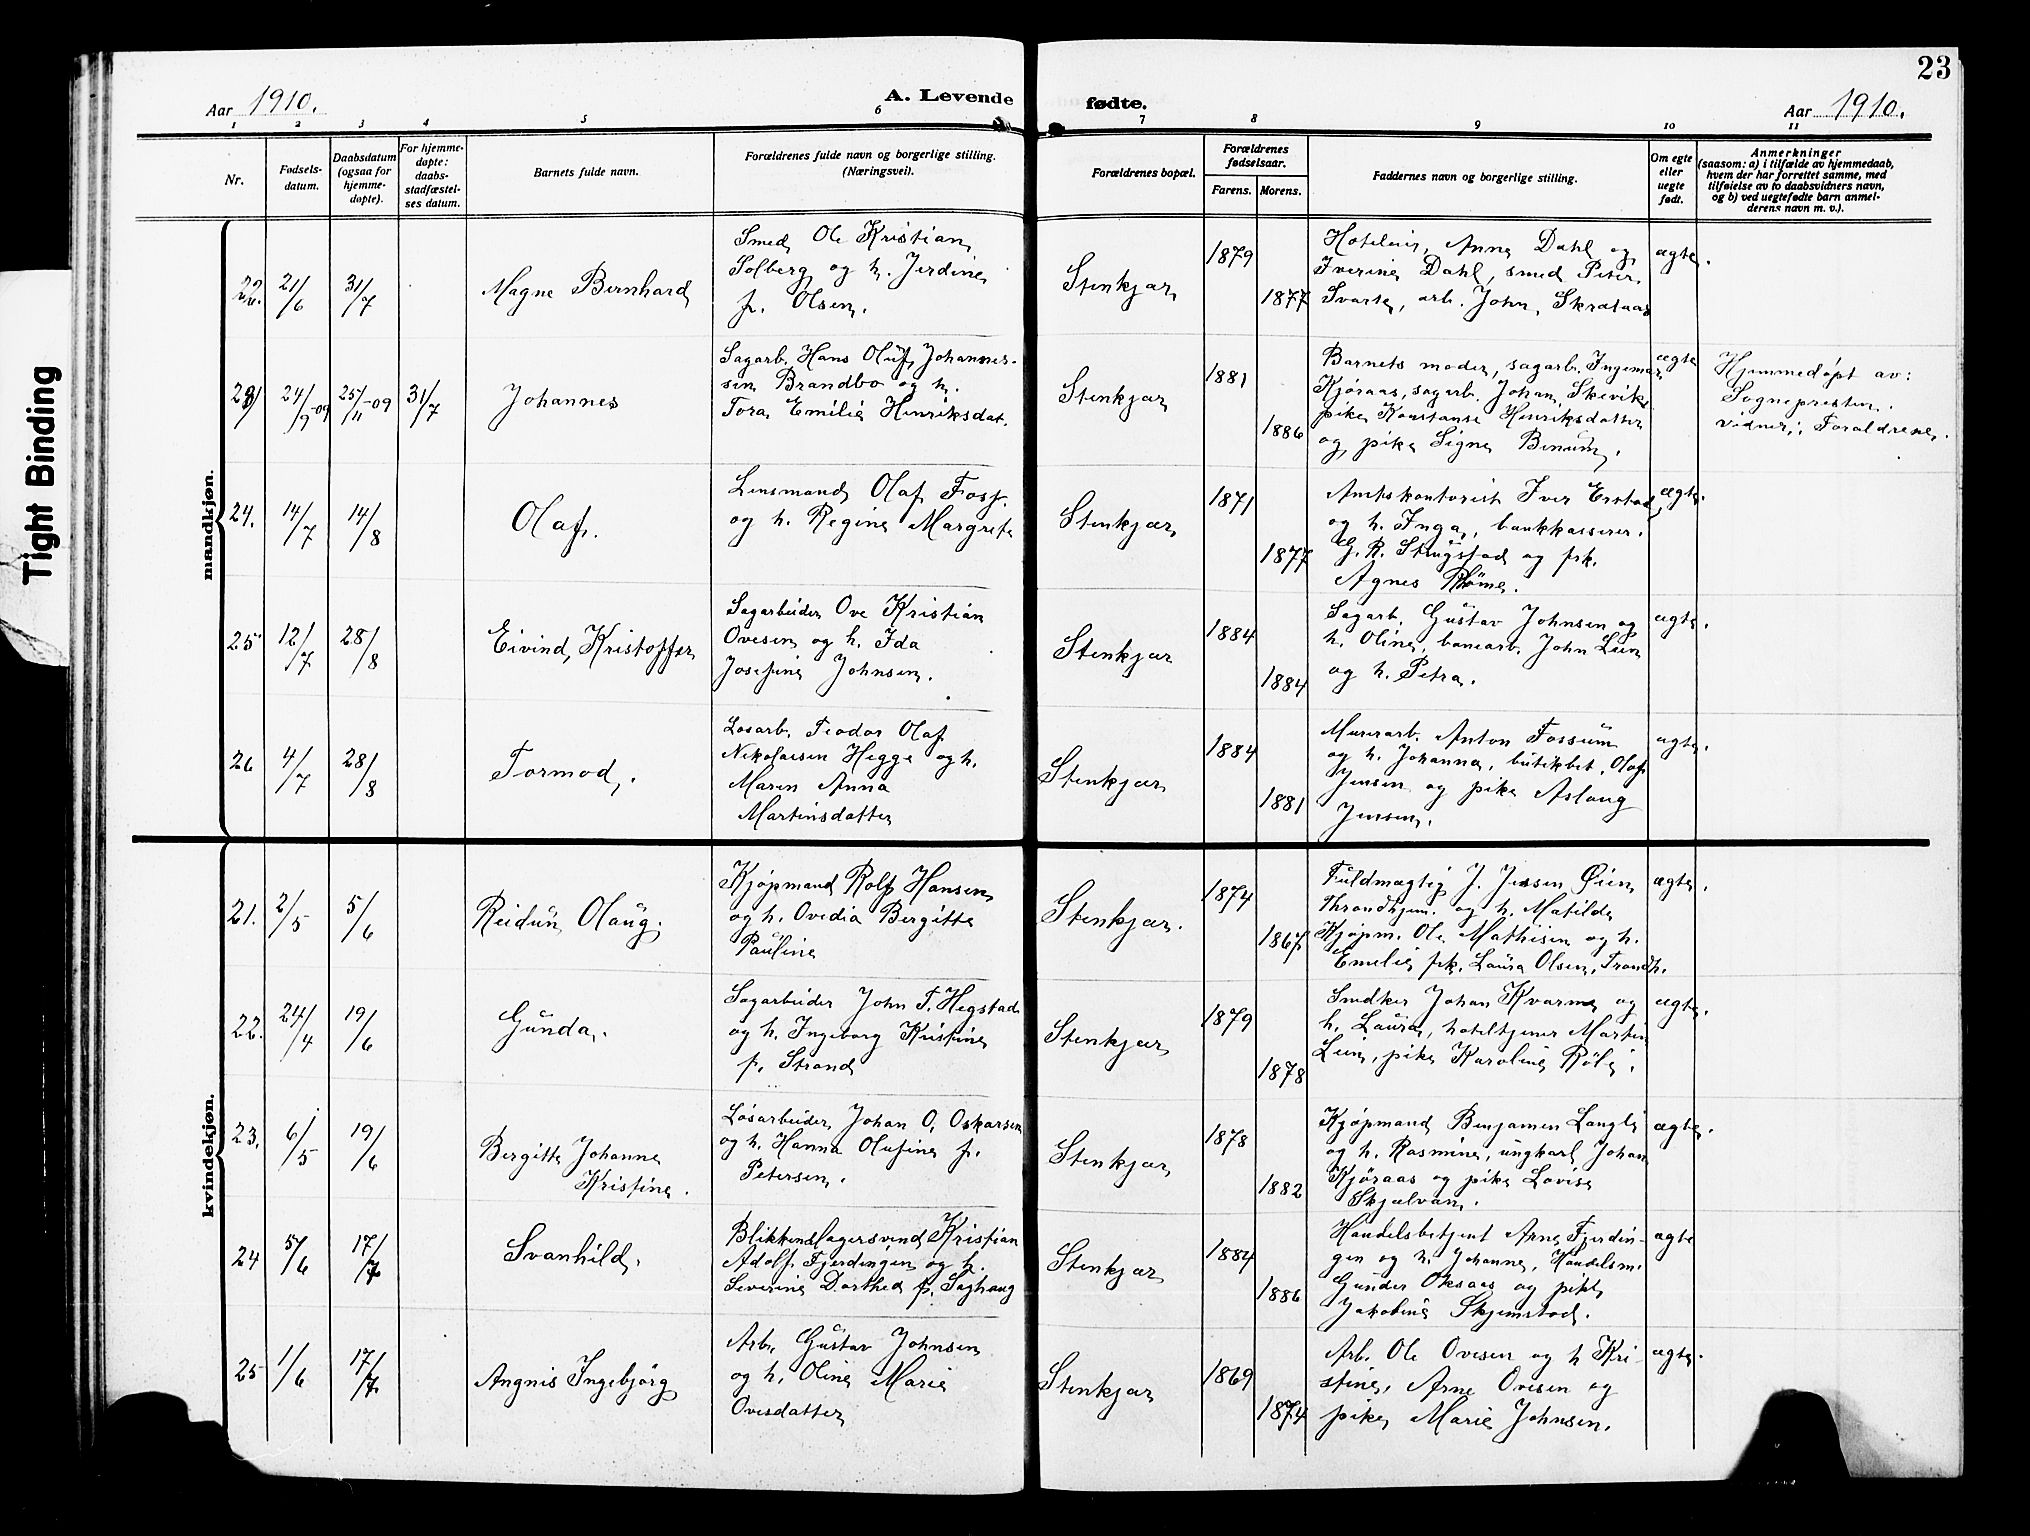 23
Aar 1910.
A. Levende
fødte.
Aar 1910.
1 2 3 4 5 6 7 8 9 10 11
Nr.
Fødsels-
datum.
Daabsdatum
(ogsaa for
hjemme-
døpte).
For hjemme-
døpte:
daabs-
stadfæstel-
ses datum.
Barnets fulde navn.
Forældrenes fulde navn og borgerlige stilling.
(Næringsvei).
Forældrenes bopæl.
Forældrenes
fødselsaar.
Farens. Morens.
Faddernes navn og borgerlige stilling.
Om egte
eller
uegte
født.
Anmerkninger
(saasom: a) i tilfælde av hjemmedaab,
hvem der har forrettet samme, med
tilføielse av to daabsvidners navn,
og b) ved uegtefødte barn anmel-
derens navn m. v.).
Tight Binding
mandkjøn.
22. 21/6 31/7
Magne Bernhard
Smed Ole Kristian
Solberg og h. Jerdine
f. Olsen.
Stenkjær
1879
1877
Anna Dahl og
Iverine Dahl, smed Peter
Svarte, arb. John Skrataas
ægte.
23 24/9-09 25/11-09 31/7
Johannes
Sagarb. Hans Oluf Johannes-
sen Brandbo og h.
Tora Emilie Henriksdat.
Stenkjær
1881
1886
Barnets moder, sagarb. Ingemar
Kjøraas, sagarb. Johan Skevik
pike Konstanse Henriksdatter
og pike Signe Binum.
ægte
Hjemmedøpt av:
Sognepresten.
vidner: Forældrene.
24. 14/7 14/8
Olaf.
Lensmand Olaf Five
og h. Regine Margrete
Stenkjær
1871
1877
Amtskontorist Iver Erstad
og h. Inga, bankkasserer
G. R. Stingstad og frk.
Agnes
ægte.
25 12/7 28/8
Eivind Kristoffer
Sagarbeider Ove Kristian
Ovesen og h. Ida
Josefine Johnsen.
Stenkjær
1884
1884
Sagarb. Gustav Johnsen og
h. Oline, banearb. John Lein
og h. Petra.
ægte.
26 4/7 28/8
Tormod.
Løsarb. Teodor Olaf
Nikolaisen Hegge og h.
Maren Anna
Martinsdatter
Stenkjær
1884
1881
Murerarb. Anton Fossum
og h. Johanna, butikbet. Olaf
Jensen og pike Aslaug
Jensen.
ægte.
kvindekjøn.
21. 2/5 5/6
Reidun Olaug.
Kjøpmand Rolf Hansen
og h. Ovedia Bergitte
Pauline
Stenkjær.
1874
1867
Fuldmægtig J. Jensen Øien
Throndhjem. og h. Matilde
Kjøpm. Ole Mathisen og h.
Emelie, frk. Laura Olsen, Trondh.
ægte.
22. 24/4 19/6
Gunda.
Sagarbeider John T. Hegstad
og h. Ingeborg Kristine
f. Strand
Stenkjær
1879
1878
Snedker Johan Kvarme og
h. Laura, hoteltjener Martin
Lein, pike Karoline Røli.
ægte.
23. 6/5 19/6
Bergitte Johanne
Kristine.
Løsarbeider Johan O. Oskarsen
og h. Hanna Olufine f.
Petersen.
Stenkjær
1878
1882
Kjøpmand Benjamen Langli
og h. Rasmine, ungkarl Johan
Kjøraas og pike Lovise
Skjælvan.
ægte.
24 5/6 17/7
Svanhild.
Blikkenslagersvend Kristian
Adolf Fjerdingen og h.
Severine Dorthea f. Saghaug
Stenkjær
1884
1886
Handelsbetjent Arne Fjerdin-
gen og h. Johanne, Handelsm.
Gunder Oksaas og pike
Jakobine Skjemstad.
ægte
25 1/6 17/7
Angnis Ingebjørg
Arb. Gustav Johnsen
og h. Oline Marie
Ovesdatter
Stenkjær
1869
1874
Arb. Ole Ovesen og h Kri-
stine, Arne Ovesen og
pike Marie Johnsen.
ægte.